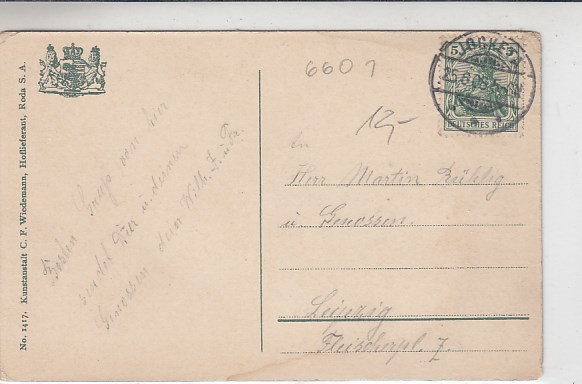 No. 1417. Kunstanstalt C. F. Wiedemann, Hoflieferant, Roda S. A.
Besten Gruß von hier
sendet Dir u. deinen
Genossen dein Willi
6601
12,-
5
DEUTSCHES REICH
An
Herr Martin
u. Genossen.
Leipzig
Fleischerpl. 7.